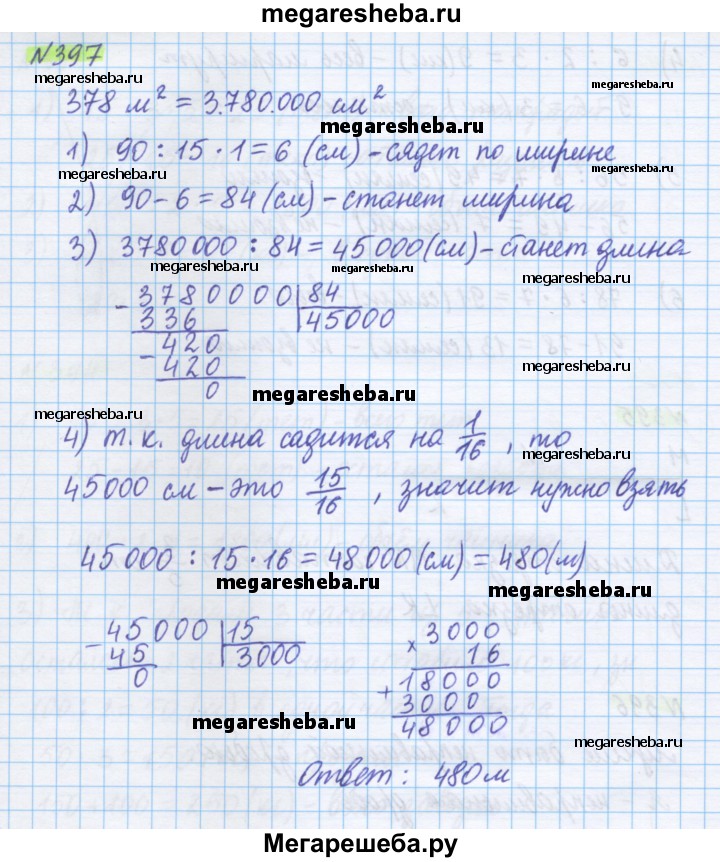 megaresheba.ru
№397
megaresheba.ru
378 м² = 3.780.000 см²
megaresheba.ru
megaresheba.ru
1) 90 : 15 · 1 = 6 (см) - сядет по ширине
megaresheba.ru
megaresheba.ru
2) 90 - 6 = 84 (см) - станет ширина
megaresheba.ru
3) 3780000 : 84 = 45000 (см) - станет длина
megaresheba.ru
megaresheba.ru
megaresheba.ru
- 3780000 | 84
336 45000
megaresheba.ru
- 420
megaresheba.ru
420
0
megaresheba.ru
megaresheba.ru
4) т. к. длина садится на 1/16 , то
megaresheba.ru
45000 см - это 15/16 , значит нужно взять
megaresheba.ru
45000 : 15 · 16 = 48000 (см) = 480 (м)
megaresheba.ru
megaresheba.ru
- 45000 | 15
45 3000
0
megaresheba.ru
× 3000
16
+ 18000
3000
48000
megaresheba.ru
megaresheba.ru
Ответ : 480 м
megaresheba.ru
Мегарешеба.ру